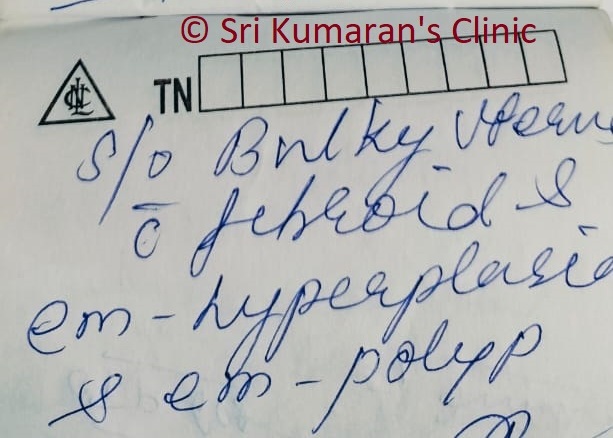 © Sri Kumaran's Clinic
TN
S/o Bulky Uterus
c̄ fibroid &
em - hyperplasia
& em - polyp